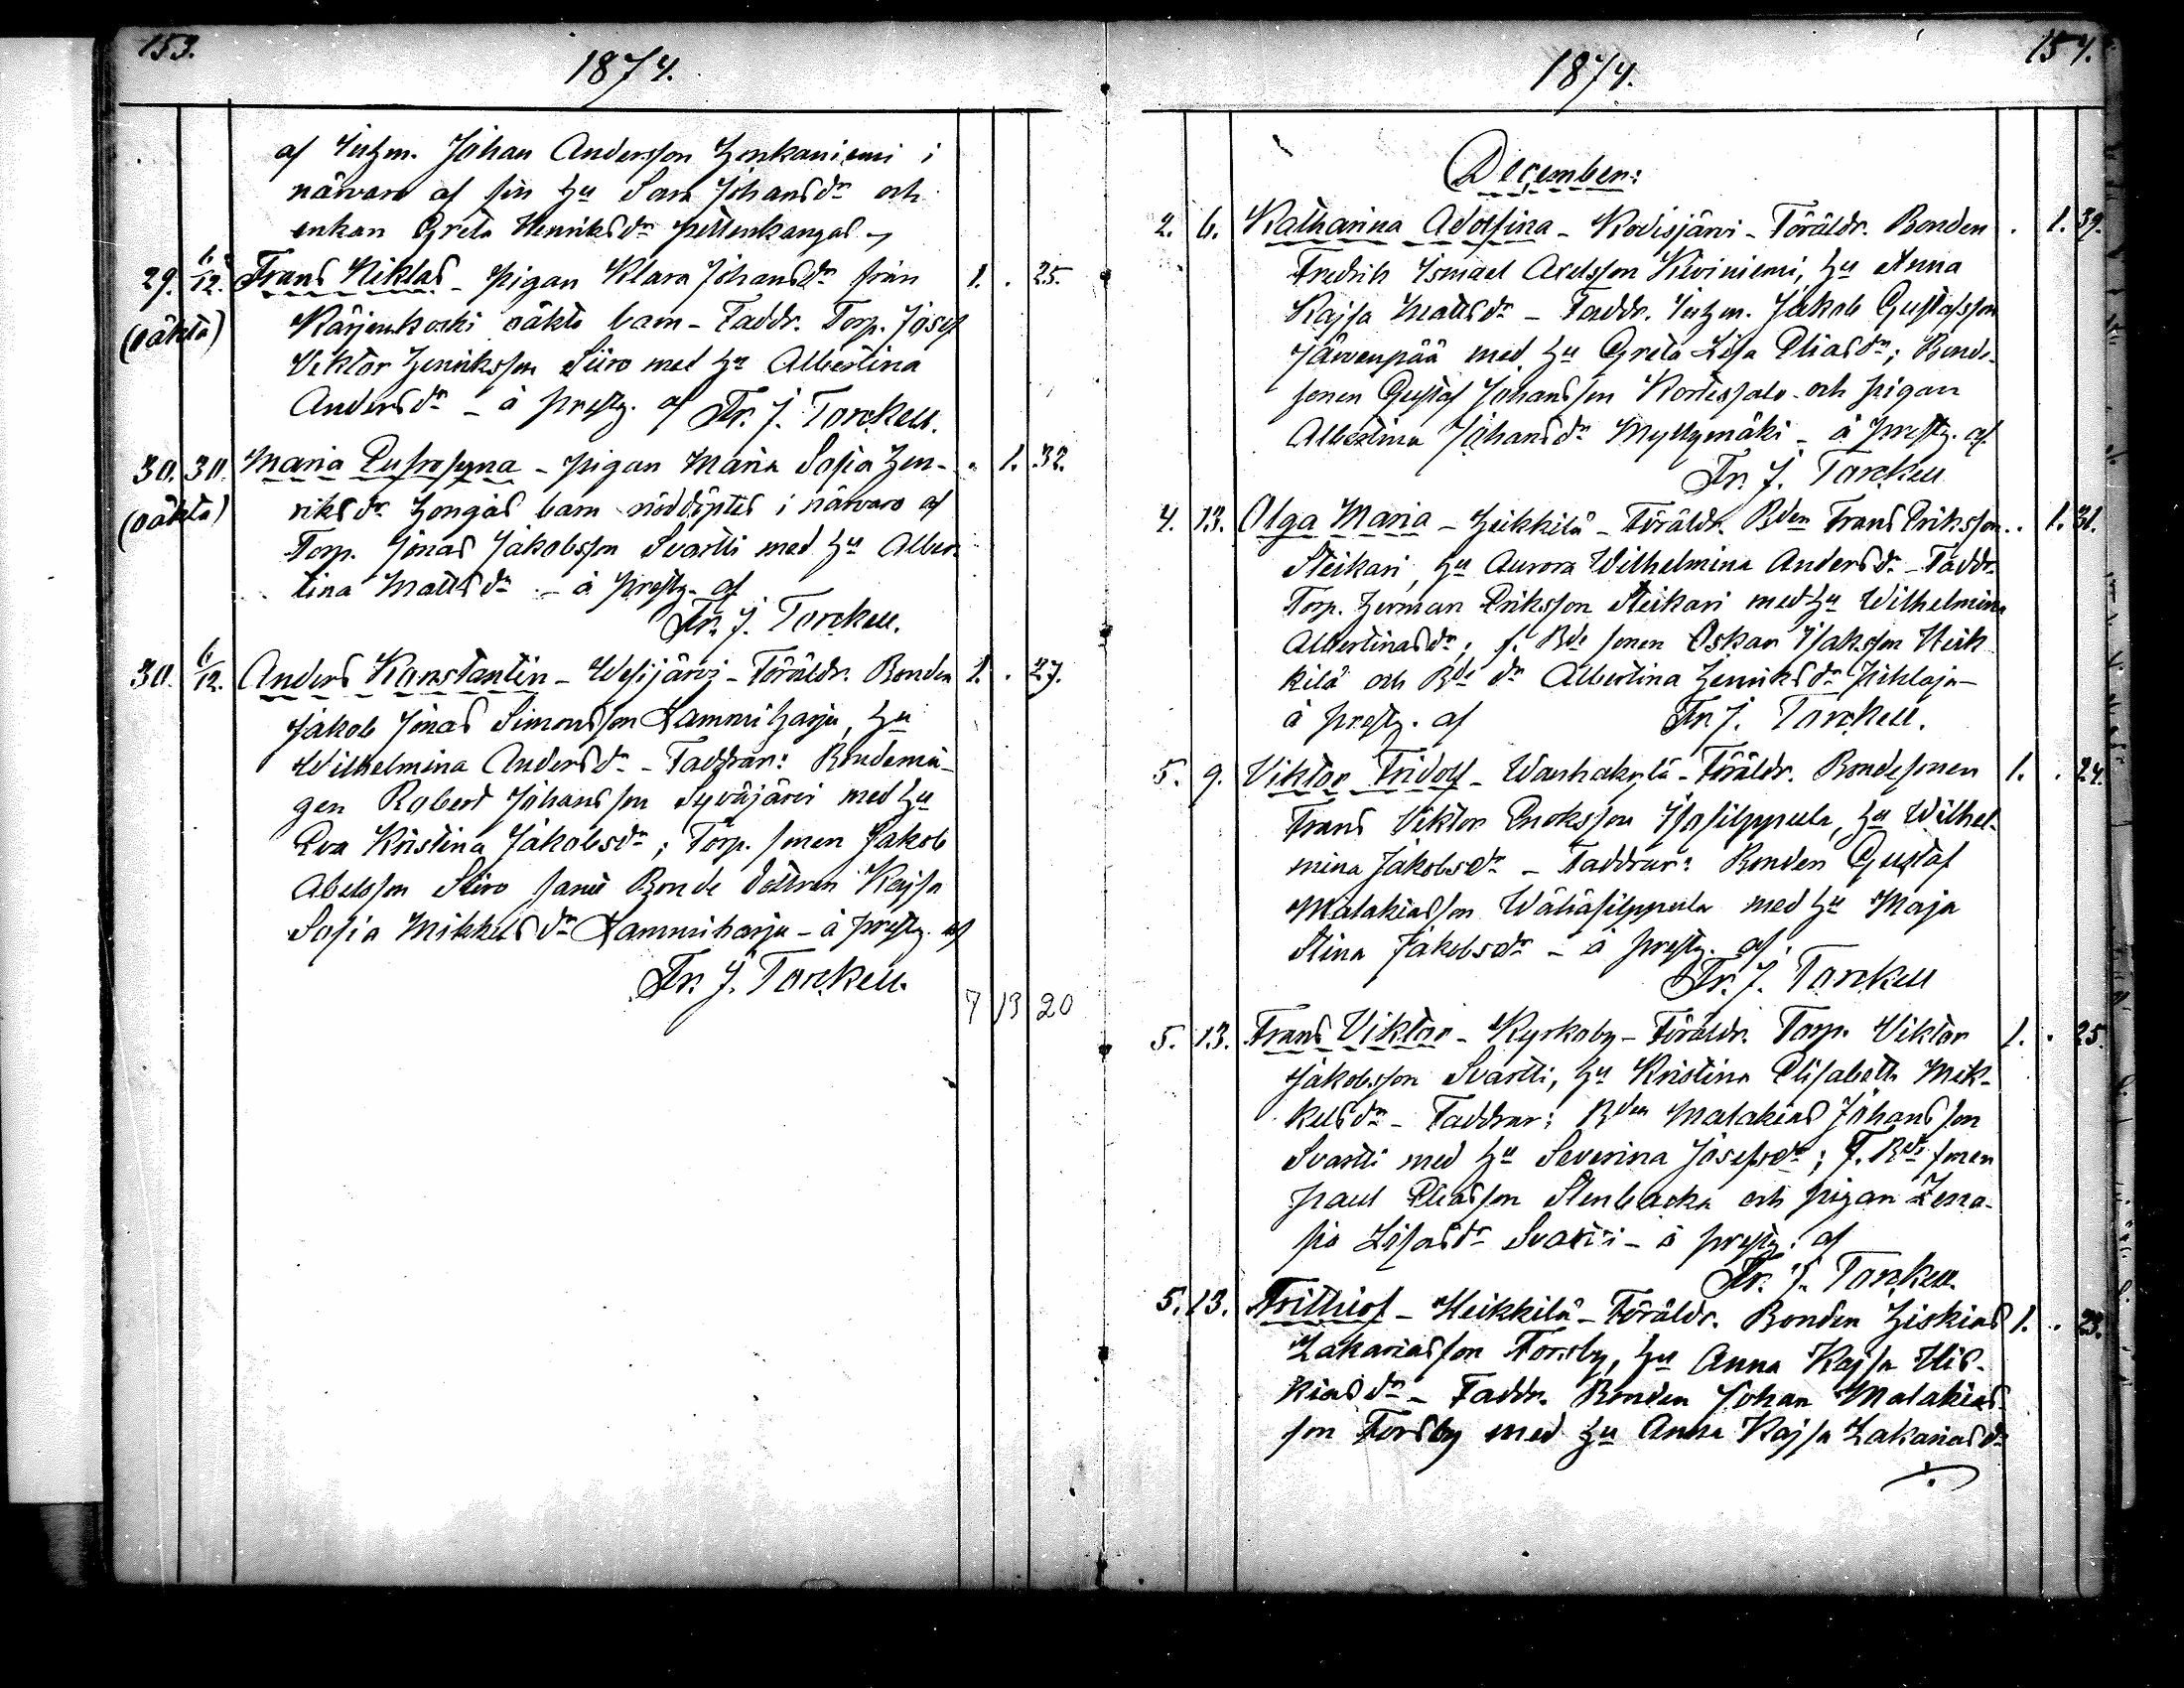 153.
1874.
af Inhm. Johan Andersson Honkaniemi i
närvaro af sin hu Sara Johansdr och
enkan Greta Henriksdr Pettenkangas
29. 6/12. Frans Niklas - Pigan Klara Johansdr från 1. . 25.
(oäkta) Kärjenkoski oäkta barn - Faddr. Torp. Josef
Viktor Henriksson Siiro med hu Albertina
Andersdr - å prestg. af Fr. J. Torckell.
30. 30. Maria Eufrosyna - pigan Maria Sofia Hen- . 1. 32.
(oäkta) riksdr Hongas barn nöddöptes i närvaro af
Torp. Jonas Jakobsson Svartti med hu Alber-
tina Mattsdr - å prestg. af
Fr. J. Torckell.
30. 6/12. Anders Konstantin - Wesijärvi - Föräldr. Bonden 1. . 27.
Jakob Jonas Simonsson Lammiharju, hu
Wilhelmina Andersdr - Faddrar: Bondemå-
gen Robert Johansson Syväjärvi med hu
Eva Kristina Jakobsdr; Torp. sonen Jakob
Abelsson Siiro samt Bonde dottren Kajsa
Sofia Mikkelsdr Lammiharju - å prestg. af
Fr. J. Torckell.
7 13 20
154.
1874.
December:
2. 6. Katharina Adolfina - Kodisjärvi - Föräldr. Bonden . 1. 39.
Fredrik Ismael Axelsson Kiviniemi, hu Anna
Kajsa Mattsdr - Faddr. Inhm. Jakob Gustafsson
Järvenpää med hu Greta Lisa Eliasdr; Bonde-
sonen Gustaf Johansson Kortessalo och pigan
Albertina Johansdr Myllymäki - å prestg. af
Fr. J. Torckell
4. 13. Olga Maria - Heikkilä - Föräldr. Bden Frans Eriksson . 1. 31.
Steikari, hu Aurora Wilhelmina Andersdr - Faddr.
Torp. Herman Eriksson Steikari med hu Wilhelmina
Albertinasdr; f. Bde sonen Oskar Isaksson Heik
kilä och Bde dr Albertina Henriksdr Pihlaja -
å prestg. af Fr. J. Torckell.
5. 9. Viktor Fridolf - Wanhakylä - Föräldr. Bondesonen 1. . 24.
Frans Viktor Enoksson Isosilppula, hu Wilhel-
mina Jakobsdr - Faddrar: Bonden Gustaf
Malakiasson Wähäsilppula med hu Maja
Stina Jakobsdr - å prestg. af.
Fr. J. Torckell
5. 13. Frans Viktor - Kyrkoby - Föräldr. Torp. Viktor 1. . 25.
Jakobsson Svartti, hu Kristina Elisabeth Mik-
kelsdr - Faddrar: Bden Malakias Johansson
Svartti med hu Severina Josefsdr; F. Bde sonen
Paul Eliasson Stenbacka och pigan
Lisasdr Svartti - å prestg. af
Fr. J. Torckell.
5. 13. Frithiof - Heikkilä - Föräldr. Bonden Hiskias 1. . 23.
Zakariasson Forsby, hu Anna Kajsa His-
kiasdr - Faddr. Bonden Johan Malakias-
son Forsby med hu Anna Kajsa Zakariasdr